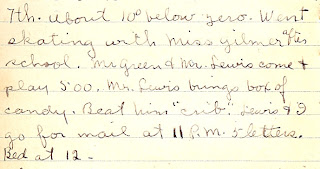 7th. About 10° below zero. Went
skating with Miss Gilmer & her
school. Mr Green & Mr. Lewis come &
play 500. Mr. Lewis brings box of
candy. Beat him "crib". Lewis & I
go for mail at 11 P.M. 5 letters.
Bed at 12 -